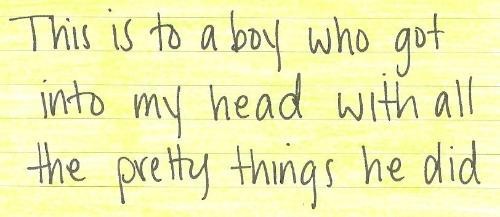 This is to a boy who got
into my head with all
the pretty things he did